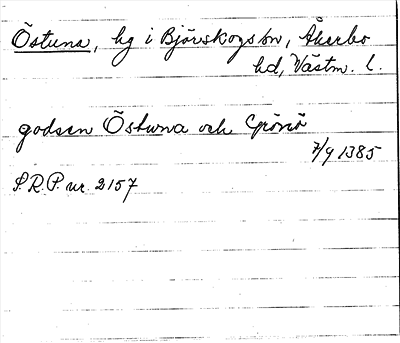 Östuna, hg i Björskogs sn, Åkerbo
hd, Västm. l.
godsen Östuna och Grönö
7/9 1385
S.R.P. nr. 2157